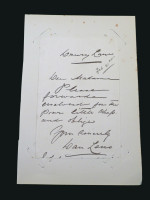 Drury Lane
Dear Madam
Please
forward
enclosed for the
Poor Little Chap
and oblige
Yours sincerely
Dan Leno